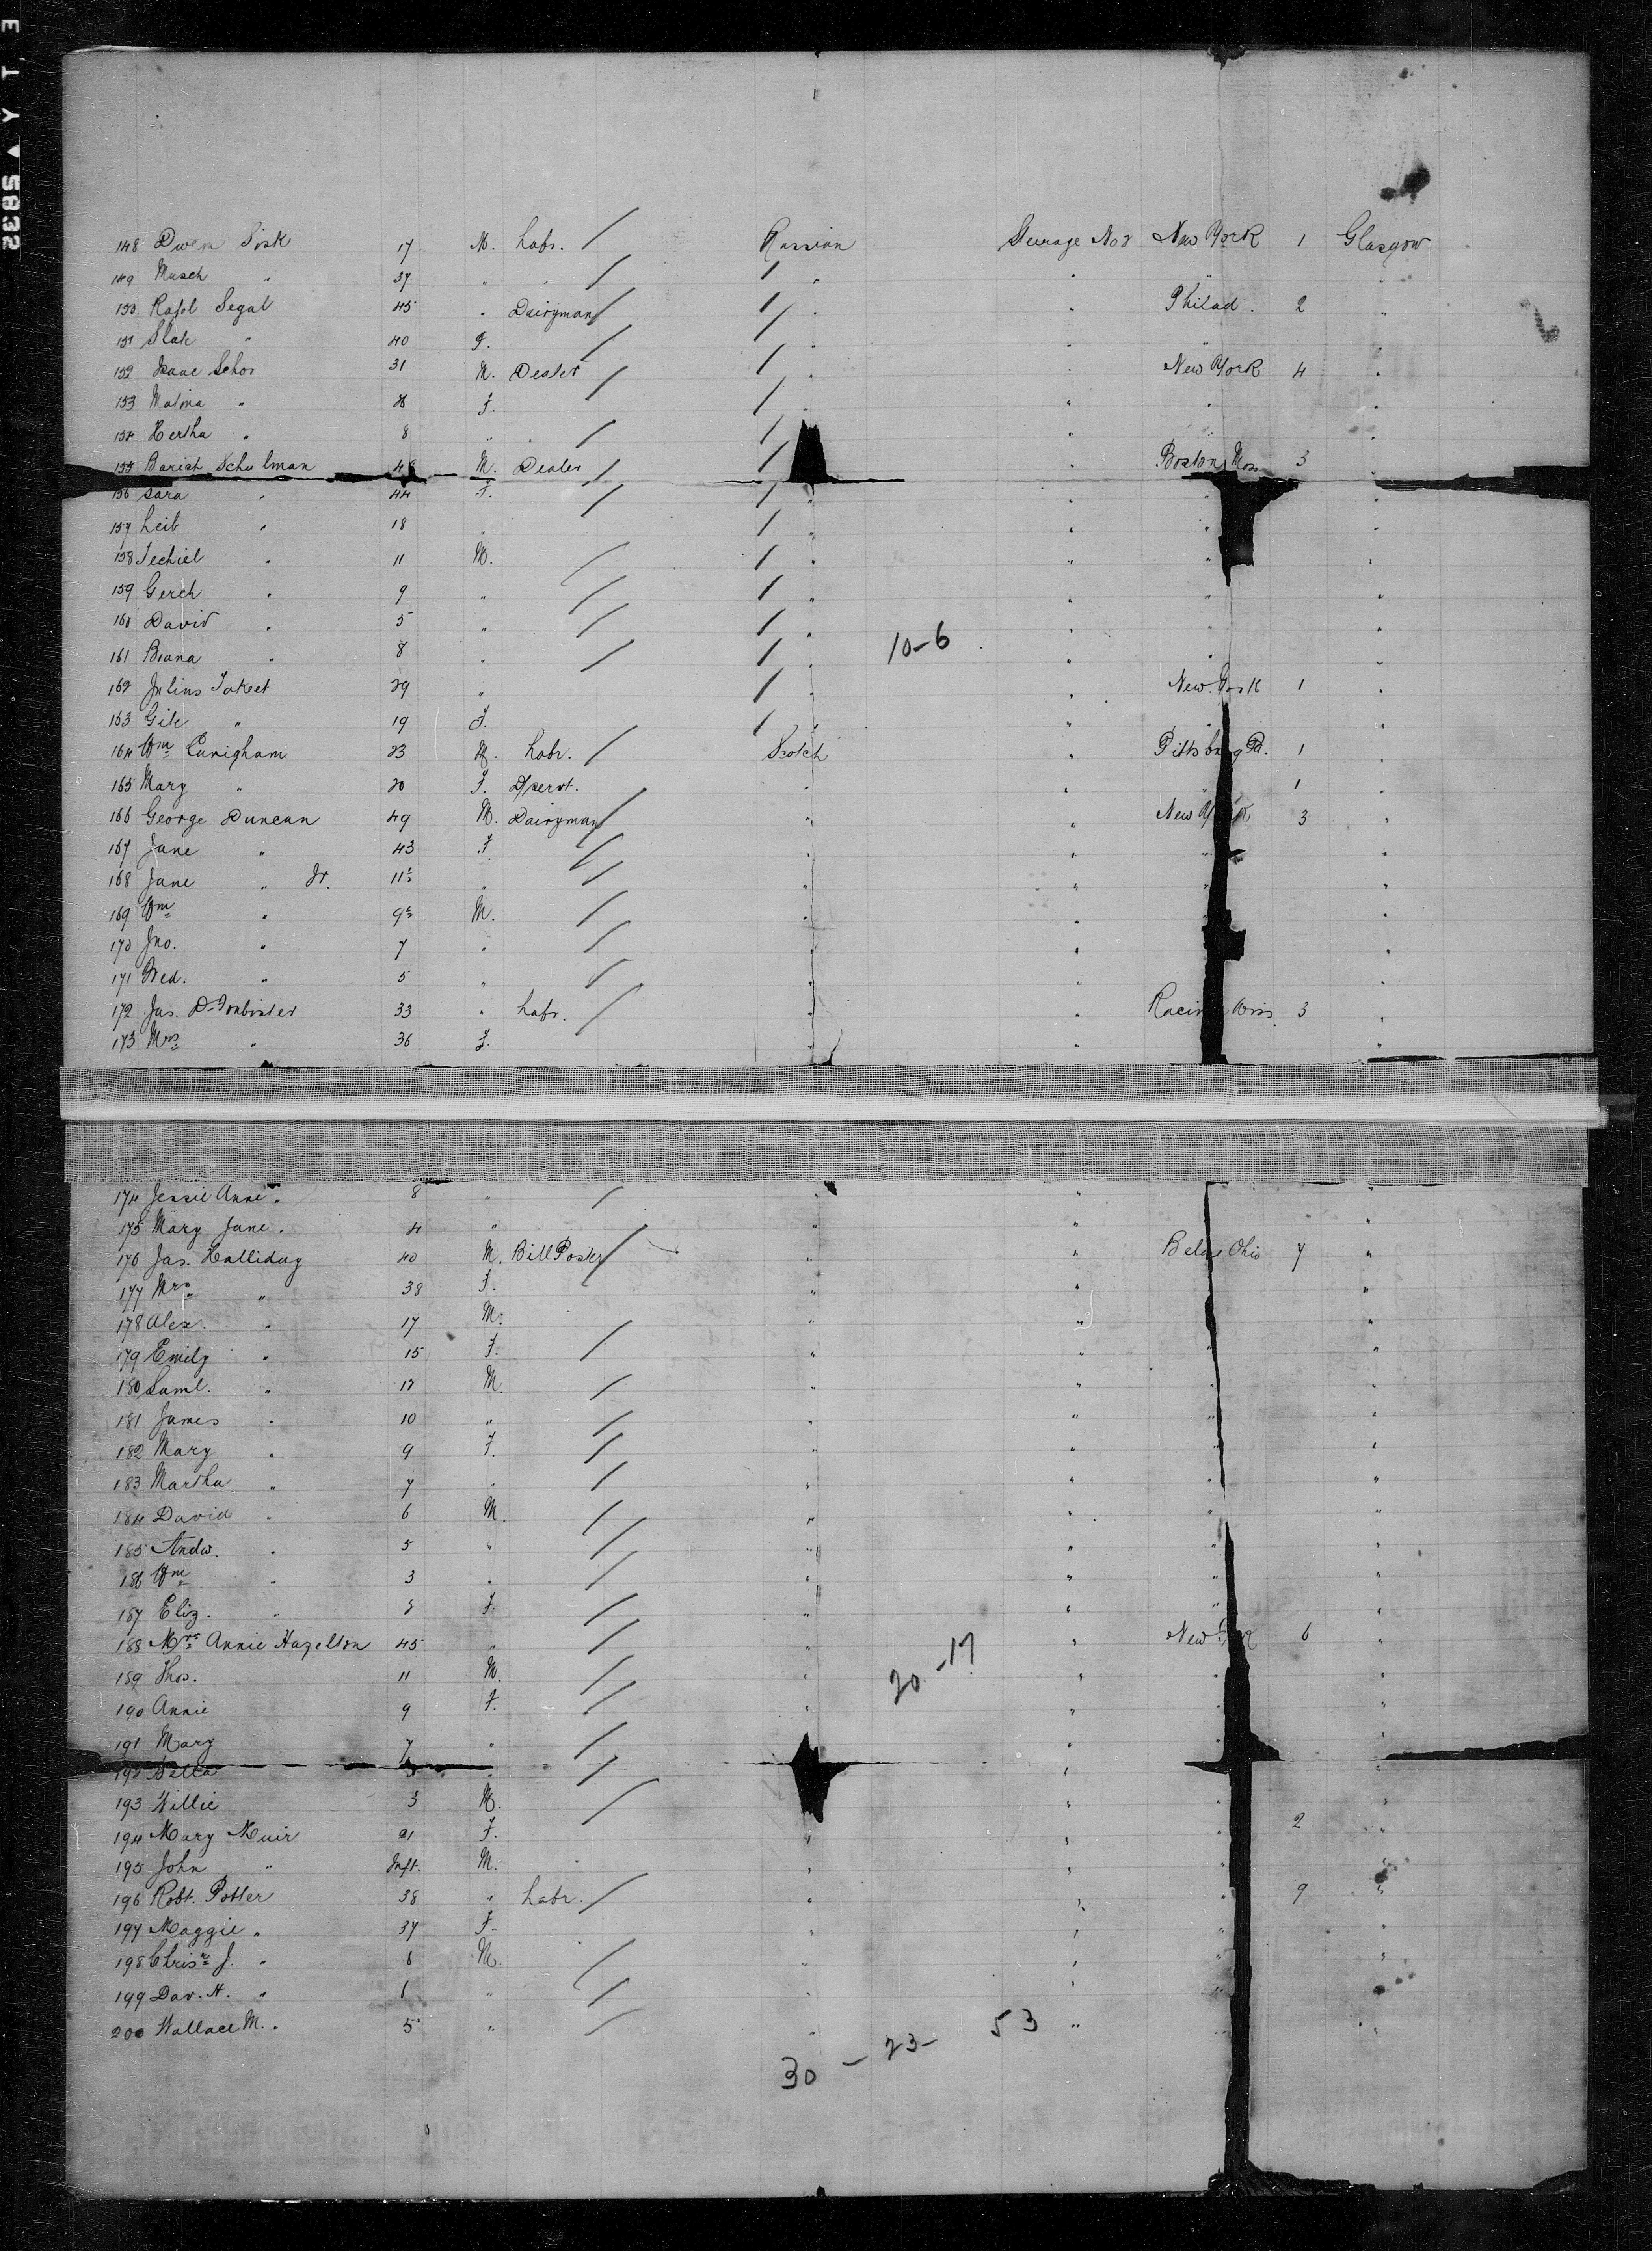 148 Owen Sisk 17 M. Labr. / Russian Steerage No 2 New York 1 Glasgow
149 Musch " 37 " " / / " " " "
150 Segal 45 " Dairyman / / " " Philad. 2 "
151 " 40 F. / / " " " "
152 Schor 31 M. Dealer / / " New York 4 "
153 Malma " F. / / " " " "
154 Hertha " 8 " " / / " " "
155 Schulman M. Dealer / / " Boston Mass 3 "
156 Sara " 44 F. / / " " " "
157 Leib " 18 " / " " " "
158 Jechiel " 11 M. / / " " " "
159 Gerch " 9 " / / " " " "
160 David " 5 " / / " " " "
161 " 8 " / / " 10-6 " " "
162 Julius 29 " / " " New York 1 "
163 " 19 F. / " " " "
164 Wm Cunigham 23 M. Labr. / Scotch " Pittsburg Pa. 1 "
165 Mary " 20 F. " " " 1 "
166 George Duncan 49 M. Dairyman / " " New York 3 "
167 Jane " 43 F. / " " " "
168 Jane " Jr. 11 " / " " " "
169 Wm " 9 M. / " " " "
170 Jno. " 7 " / " " " "
171 " 5 " / " " "
172 Jas. 33 " Labr. / " " Racine Wis. 3 "
173 Mrs " 36 F. " " "
174 Jessie Anne " 8 " / " " "
175 Mary Jane " 4 " " " "
176 Jas. Halliday 40 M. Bill Poster / " " Ohio 7 "
177 Mrs " 38 F. " " "
178 Alex. " 17 M. " " "
179 Emily " 15 F. / " " " "
180 Saml. " M. / " " " "
181 James " 10 " / " " " "
182 Mary " 9 F. / " " " "
183 Martha " 7 " / " " " "
184 David " 6 M. / " " " "
185 Andw. " 5 " / " " " "
186 Wm " 3 " / " " " "
187 Eliz. " F. / " " " "
188 Mrs Annie Hazelton 45 " " 20-17 " New York 6 "
189 Thos. 11 M. / " " " "
190 Annie 9 F. / " " " "
191 Mary 7 " / " " " "
192 Bella " / " " "
193 Willie 3 M. / " " "
194 Mary Muir 21 F. " " " 2 "
195 John " Inft. M. " " " "
196 Robt. Potter 38 " Labr. / " " " 9 "
197 Maggie " 37 F. " " " "
198 Chrisr J. " M. / " " " "
199 Dav. H. " " / " " "
200 Wallace M. " 5 " / " " " "
30 - 23 - 53